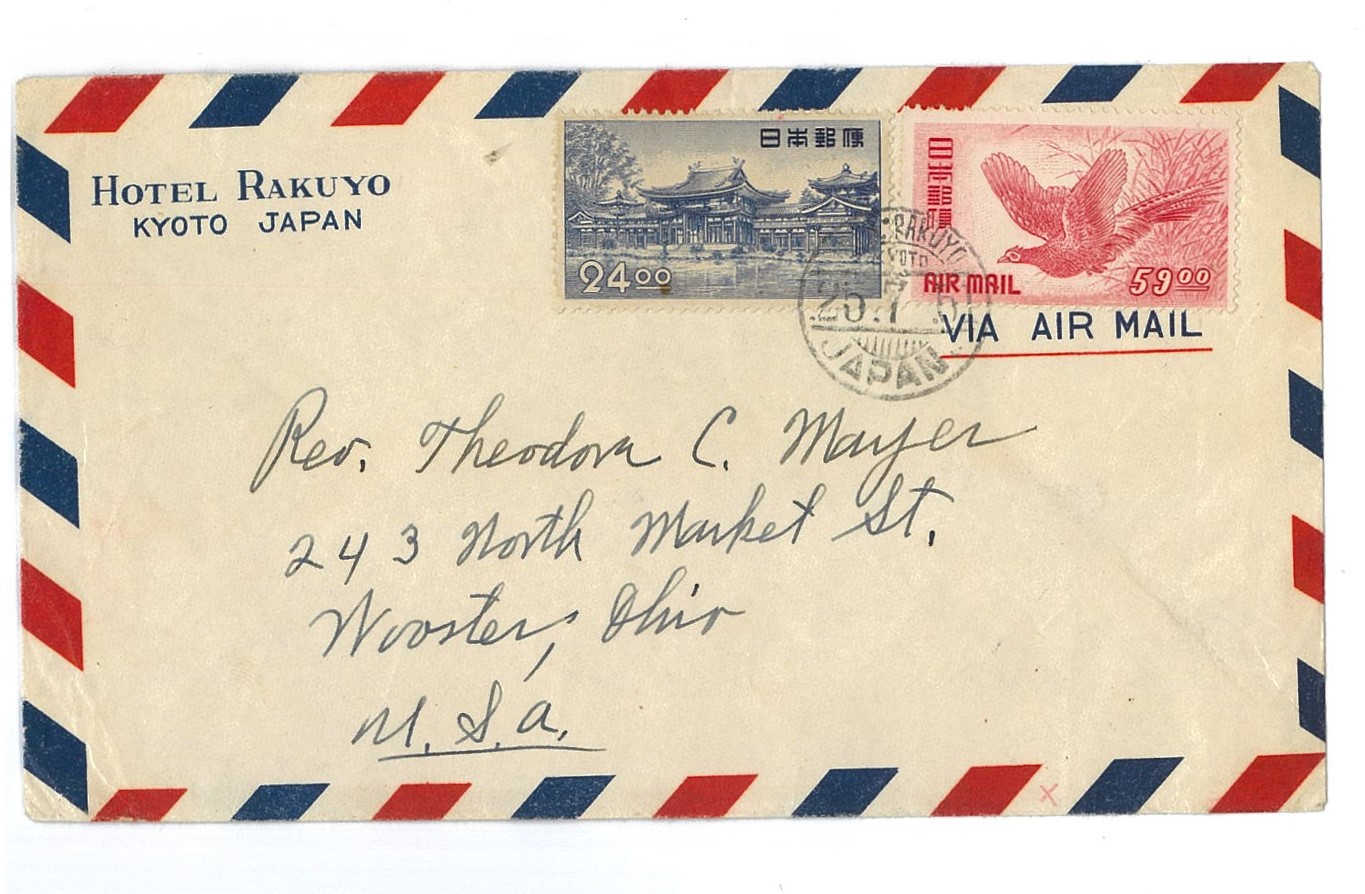 HOTEL RAKUYO
KYOTO JAPAN
日本郵便
24 00
日本郵便
AIR MAIL
59 00
RAKUYO
KYOTO
JAPAN
VIA AIR MAIL
Rev. Theodora C. Mayer
243 North Market St.
Wooster, Ohio
U.S.A.